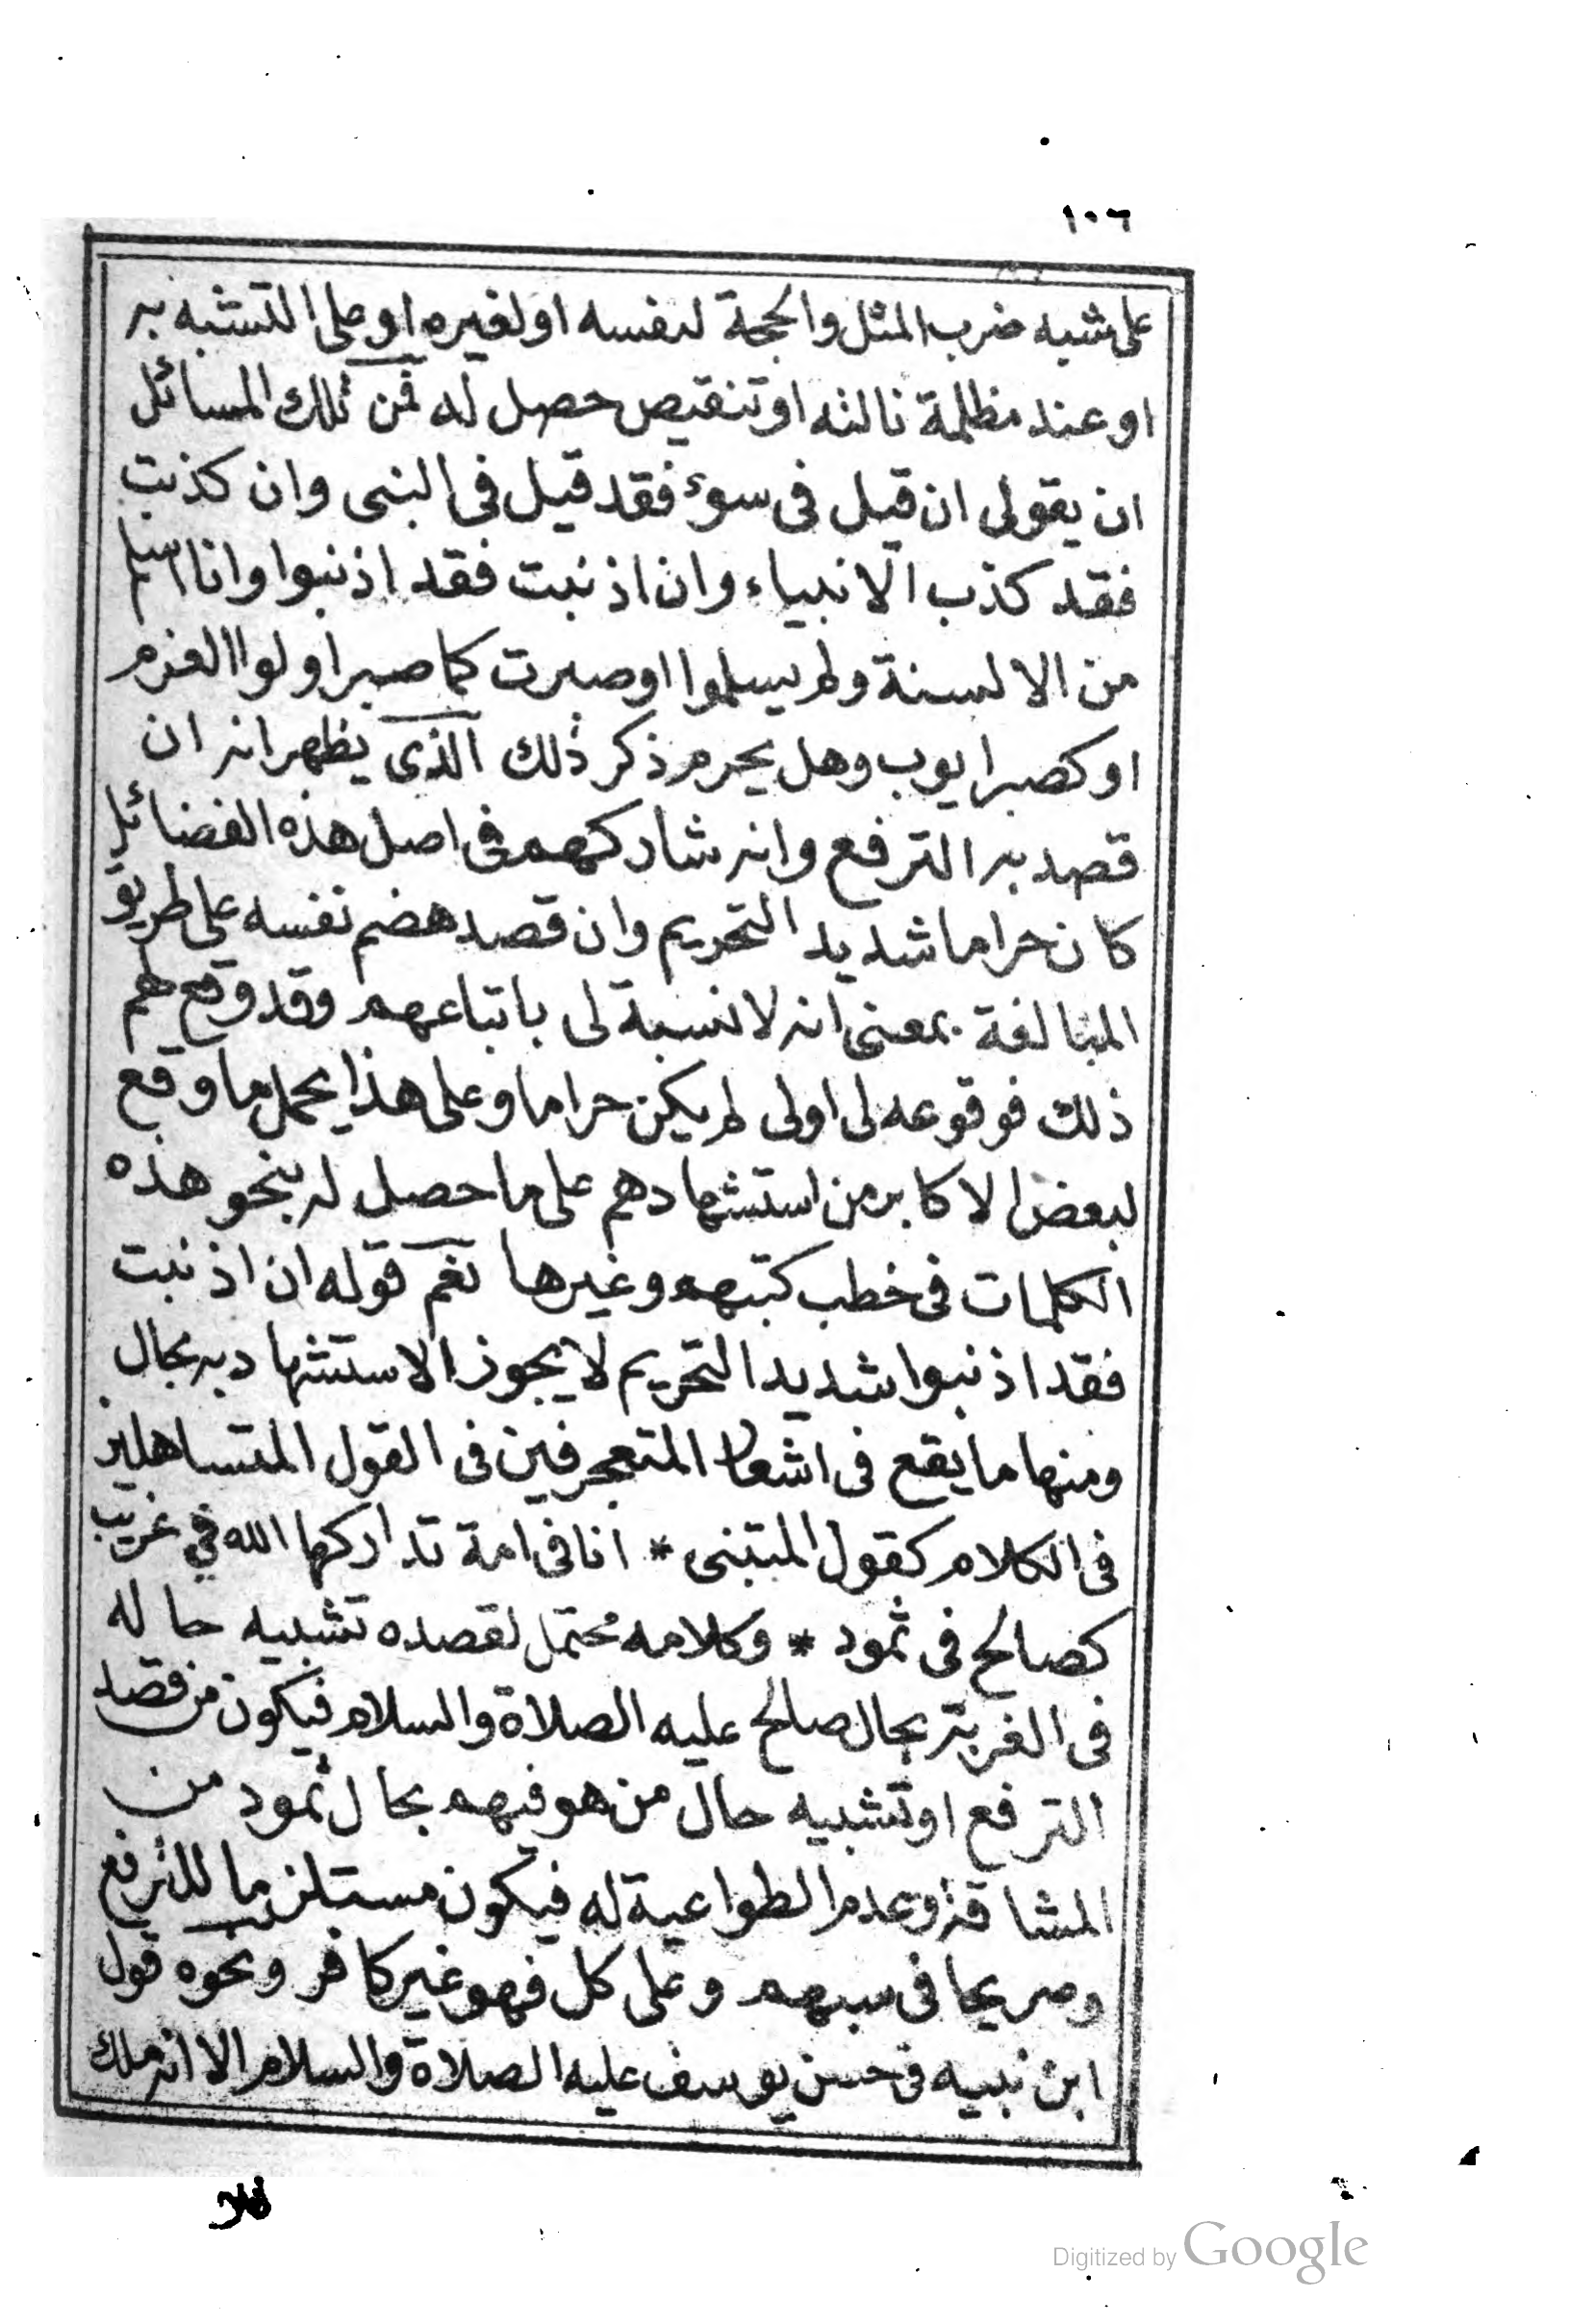 ١٠٦
على شبه ضرب المثل والحجة لنفسه او لغيره او على التشبه به
او عند مظلمة نالته او تنقيص حصل له فمن تلك المسائل
ان يقول ان قيل فى سوء فقد قيل فى النبى وان كذبت
فقد كذب الانبياء وان اذنبت فقد اذنبوا وانا اسلم
من الالسنة ولم يسلموا او صبرت كما صبر اولوا العزم
او كصبر ايوب وهل يحرم ذكر ذلك الذى يظهر انه ان
قصد به الترفع وانه شاركهم فى اصل هذه الفضائل
كان حراما شديد التحريم وان قصد هضم نفسه على طريق
المبالغة بمعنى انه لا نسبة لى باتباعهم وقد وقع لهم
ذلك فوقوعه لى اولى لم يكن حراما وعلى هذا يحمل ما وقع
لبعض الاكابر من استشهادهم على ما حصل له بنحو هذه
الكلمات فى خطب كتبهم وغيرها نعم قوله ان اذنبت
فقد اذنبوا شديد التحريم لا يجوز الاستشهاد به بحال
ومنها ما يقع فى اشعار المتعجرفين فى القول المتساهلين
فى الكلام كقول المتنبى * انا فى امة تداركها الله غريب
كصالح فى ثمود * وكلامه محتمل لقصده تشبيه حاله
فى الغربة بحال صالح عليه الصلاة والسلام فيكون من قصد
الترفع او تشبيه حال من هو فيهم بحال ثمود من
المشاقة وعدم الطواعية له فيكون مستلزما للترفع
وصريحا فى سبهم وعلى كل فهو غير كافر ونحوه قول
ابن نبيه فى حسن يوسف عليه الصلاة والسلام الا انه ملك
Digitized by Google